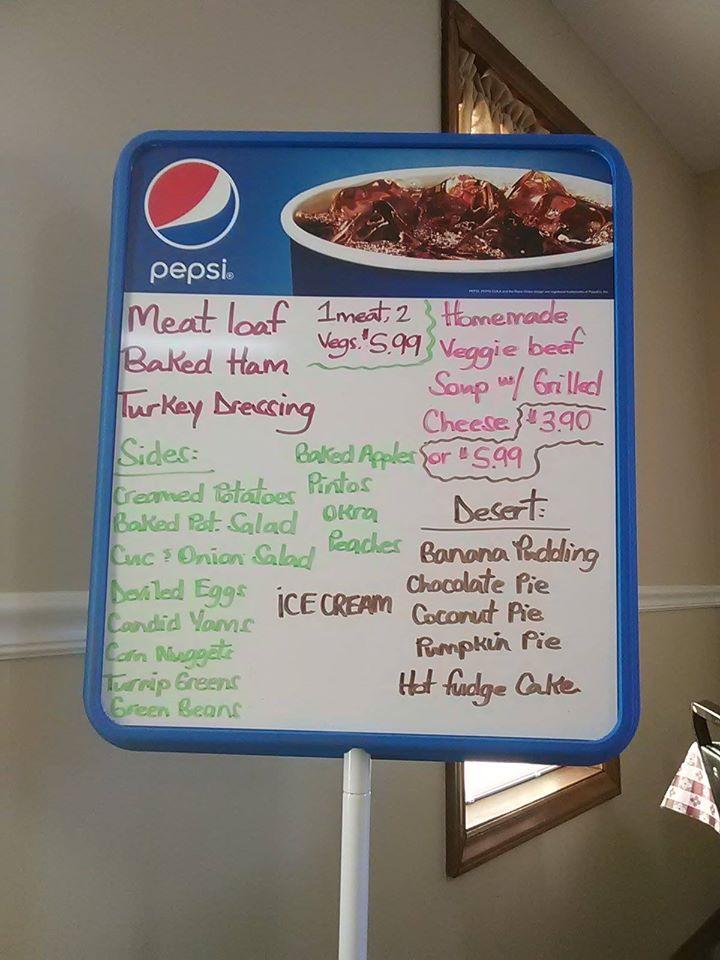 pepsi®
Meat loaf
Baked Ham
Turkey Dressing
1 meat, 2
Vegs. $5.99
Homemade
Veggie beef
Soup w/ Grilled
Cheese $3.90
or $5.99
Sides:
Creamed Potatoes
Baked Pot. Salad
Cuc & Onion Salad
Deviled Eggs
Candid Yams
Corn Nuggets
Turnip Greens
Green Beans
Baked Apples
Pintos
Okra
Peaches
ICE CREAM
Desert:
Banana Pudding
Chocolate Pie
Coconut Pie
Pumpkin Pie
Hot fudge Cake